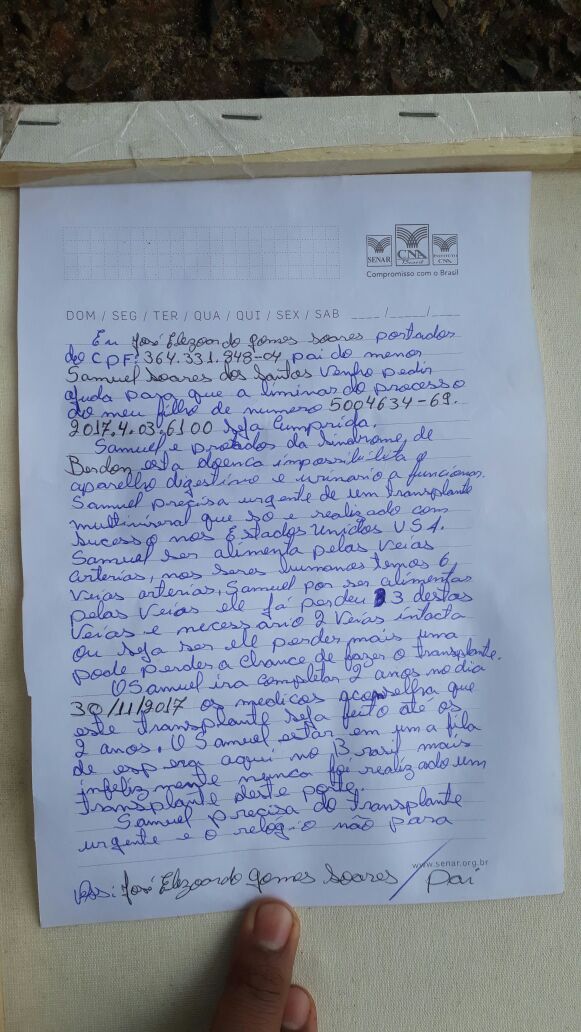 SENAR CNA Brasil INSTITUTO CNA
Compromisso com o Brasil
DOM / SEG / TER / QUA / QUI / SEX / SAB ____/____/____
Eu José Elezoardo Gomes Soares portador
do CPF: 364.331.348-04 pai do menor
Samuel Soares dos Santos venho pedir
ajuda para que a liminar do processo
do meu filho de numero 5004634-69.
2017.4.03.6100 seja cumprida.
Samuel e da Sindrome, de
Berdon esta doenca impossibilita o
aparelho digestivo e urinario a funcionar.
Samuel precisa urgente de um transplante
multiviseral que só e realizado com
sucesso nos Estados Unidos USA.
Samuel ser alimenta pelas veias
arterias, nos seres humanos temos 6
veias arterias, Samuel por ser alimentar
pelas veias ele já perdeu 3 destas
veias e necessário 2 veias intacta
ou seja ser ele perder mais uma
pode perder a chance de fazer o transplante.
O Samuel ira completar 2 anos no dia
30/11/2017 os medicos aconselha que
este transplante seja feito até os
2 anos. O Samuel estar em uma fila
de espera aqui no Brasil mais
infelizmente nunca foi realizado um
transplante deste porte.
Samuel precisa do transplante
urgente e o relogio não para
www.senar.org.br
Ass: José Elezoardo Gomes Soares / Pai